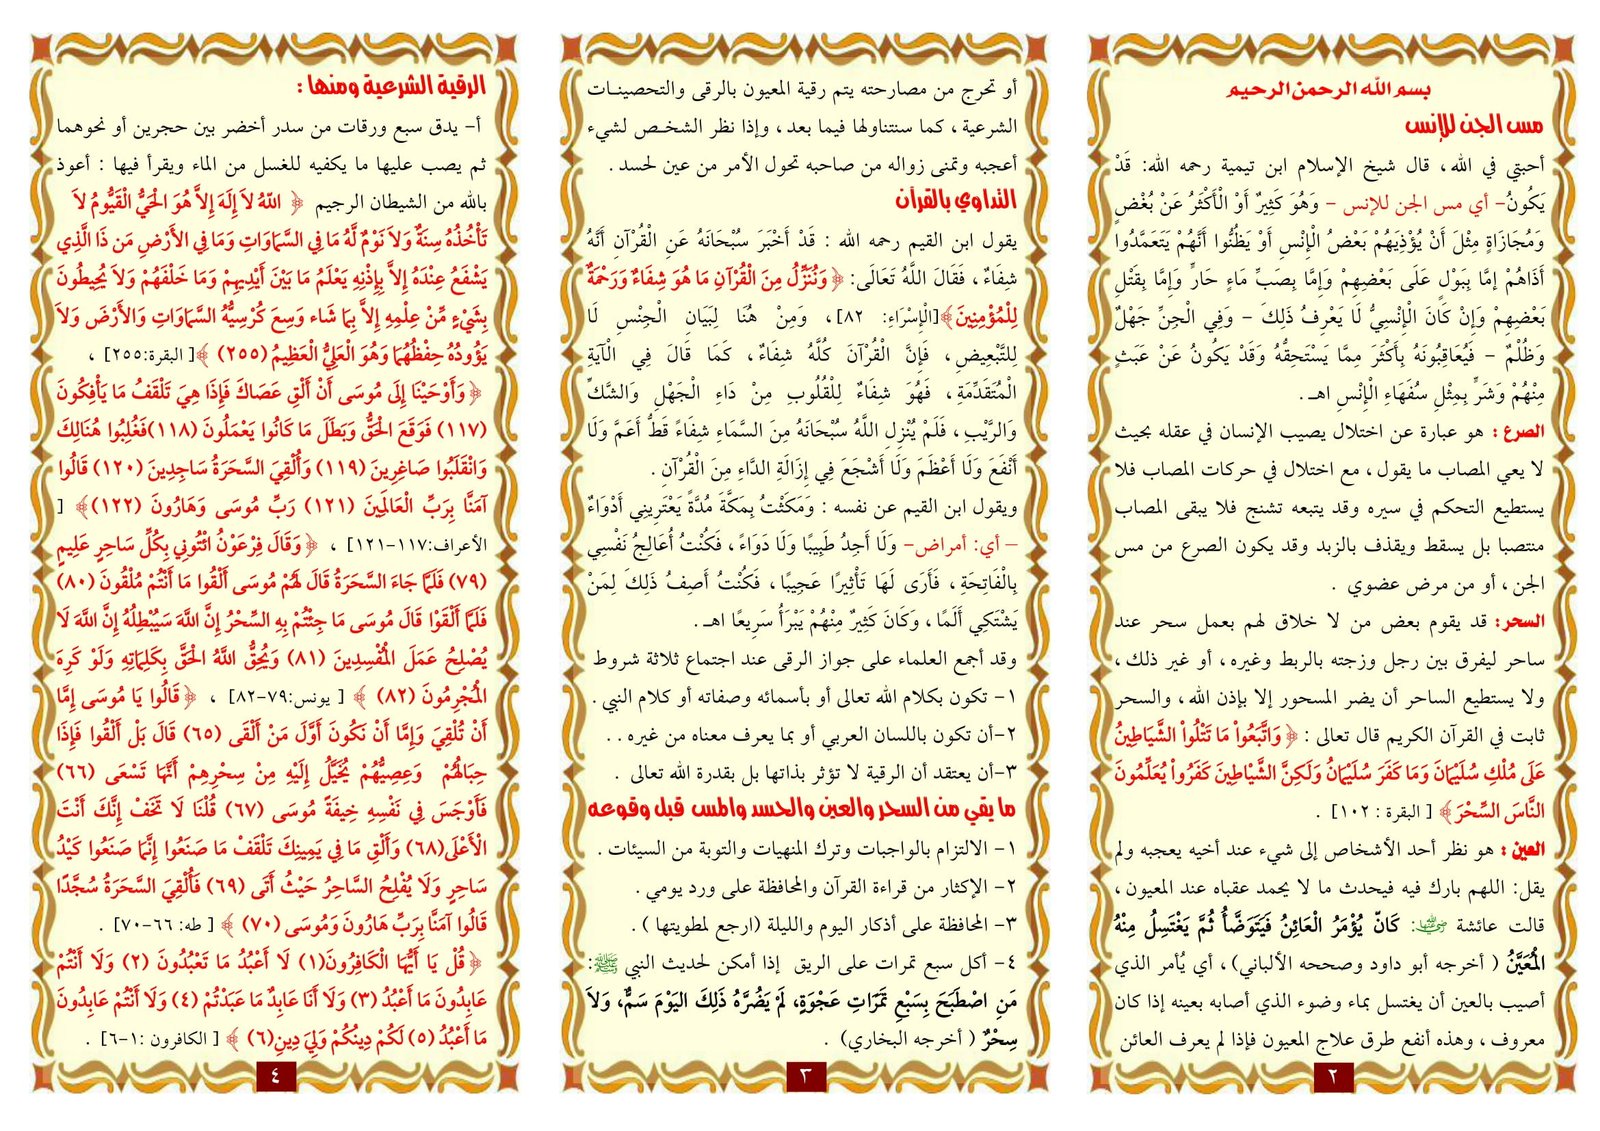 بسم الله الرحمن الرحيم
مس الجن للإنس
أحبتي في الله ، قال شيخ الإسلام ابن تيمية رحمه الله: قَدْ
يَكُونُ– أي مس الجن للإنس – وَهُوَ كَثِيرٌ أَوْ الْأَكْثَرُ عَنْ بُغْضٍ
وَمُجَازَاةٍ مِثْلَ أَنْ يُؤْذِيَهُمْ بَعْضُ الْإِنْسِ أَوْ يَظُنُّوا أَنَّهُمْ يَتَعَمَّدُوا
أَذَاهُمْ إِمَّا بِبَوْلٍ عَلَى بَعْضِهِمْ وَإِمَّا بِصَبِّ مَاءٍ حَارٍّ وَإِمَّا بِقَتْلِ
بَعْضِهِمْ وَإِنْ كَانَ الْإِنْسِيُّ لَا يَعْرِفُ ذَلِكَ – وَفِي الْجِنِّ جَهْلٌ
وَظُلْمٌ – فَيُعَاقِبُونَهُ بِأَكْثَرَ مِمَّا يَسْتَحِقُّهُ وَقَدْ يَكُونُ عَنْ عَبَثٍ
مِنْهُمْ وَشَرٍّ بِمِثْلِ سُفَهَاءِ الْإِنْسِ اهـ .
الصرع : هو عبارة عن اختلال يصيب الإنسان في عقله بحيث
لا يعي المصاب ما يقول ، مع اختلال في حركات المصاب فلا
يستطيع التحكم في سيره وقد يتبعه تشنج فلا يبقى المصاب
منتصبا بل يسقط ويقذف بالزبد وقد يكون الصرع من مس
الجن ، أو من مرض عضوي .
السحر: قد يقوم بعض من لا خلاق لهم بعمل سحر عند
ساحر ليفرق بين رجل وزجته بالربط وغيره ، أو غير ذلك ،
ولا يستطيع الساحر أن يضر المسحور إلا بإذن الله ، والسحر
ثابت في القرآن الكريم قال تعالى : ﴿ وَاتَّبَعُواْ مَا تَتْلُواْ الشَّيَاطِينُ
عَلَى مُلْكِ سُلَيْمَانَ وَمَا كَفَرَ سُلَيْمَانُ وَلَكِنَّ الشَّيْاطِينَ كَفَرُواْ يُعَلِّمُونَ
النَّاسَ السِّحْرَ﴾ [ البقرة : ١٠٢] .
العين : هو نظر أحد الأشخاص إلى شيء عند أخيه يعجبه ولم
يقل: اللهم بارك فيه فيحدث ما لا يحمد عقباه عند المعيون ،
قالت عائشة رضي الله عنها: كَانَ يُؤْمَرُ الْعَائِنُ فَيَتَوَضَّأُ ثُمَّ يَغْتَسِلُ مِنْهُ
الْمَعِيْنُ ( أخرجه أبو داود وصححه الألباني) ، أي يُأمر الذي
أصيب بالعين أن يغتسل بماء وضوء الذي أصابه بعينه إذا كان
معروف ، وهذه أنفع طرق علاج المعيون فإذا لم يعرف العائن
٢
أو تحرج من مصارحته يتم رقية المعيون بالرقى والتحصينات
الشرعية ، كما سنتناولها فيما بعد ، وإذا نظر الشخص لشيء
أعجبه وتمنى زواله من صاحبه تحول الأمر من عين لحسد .
التداوي بالقرآن
يقول ابن القيم رحمه الله : قَدْ أَخْبَرَ سُبْحَانَهُ عَنِ الْقُرْآنِ أَنَّهُ
شِفَاءٌ ، فَقَالَ اللَّهُ تَعَالَى: ﴿ وَنُنَزِّلُ مِنَ الْقُرْآنِ مَا هُوَ شِفَاءٌ وَرَحْمَةٌ
لِلْمُؤْمِنِينَ﴾[الْإِسْرَاءِ: ٨٢] ، وَمِنْ هُنَا لِبَيَانِ الْجِنْسِ لَا
لِلتَّبْعِيضِ ، فَإِنَّ الْقُرْآنَ كُلَّهُ شِفَاءٌ ، كَمَا قَالَ فِي الْآيَةِ
الْمُتَقَدِّمَةِ ، فَهُوَ شِفَاءٌ لِلْقُلُوبِ مِنْ دَاءِ الْجَهْلِ وَالشَّكِّ
وَالرَّيْبِ ، فَلَمْ يُنْزِلِ اللَّهُ سُبْحَانَهُ مِنَ السَّمَاءِ شِفَاءً قَطُّ أَعَمَّ وَلَا
أَنْفَعَ وَلَا أَعْظَمَ وَلَا أَشْجَعَ فِي إِزَالَةِ الدَّاءِ مِنَ الْقُرْآنِ .
ويقول ابن القيم عن نفسه : وَمَكَثْتُ بِمَكَّةَ مُدَّةً يَعْتَرِينِي أَدْوَاءٌ
– أي: أمراض– وَلَا أَجِدُ طَبِيبًا وَلَا دَوَاءً ، فَكُنْتُ أُعَالِجُ نَفْسِي
بِالْفَاتِحَةِ ، فَأَرَى لَهَا تَأْثِيرًا عَجِيبًا ، فَكُنْتُ أَصِفُ ذَلِكَ لِمَنْ
يَشْتَكِي أَلَمًا ، وَكَانَ كَثِيرٌ مِنْهُمْ يَبْرَأُ سَرِيعًا اهـ .
وقد أجمع العلماء على جواز الرقى عند اجتماع ثلاثة شروط
١– تكون بكلام الله تعالى أو بأسمائه وصفاته أو كلام النبي .
٢–أن تكون باللسان العربي أو بما يعرف معناه من غيره . .
٣–أن يعتقد أن الرقية لا تؤثر بذاتها بل بقدرة الله تعالى .
ما يقي من السحر والعين والحسد والمس قبل وقوعه
١– الالتزام بالواجبات وترك المنهيات والتوبة من السيئات .
٢– الإكثار من قراءة القرآن والمحافظة على ورد يومي .
٣– المحافظة على أذكار اليوم والليلة (ارجع لمطويتها ) .
٤– أكل سبع تمرات على الريق إذا أمكن لحديث النبي ﷺ:
مَنِ اصْطَبَحَ بِسَبْعِ تَمَرَاتِ عَجْوَةٍ، لَمْ يَضُرَّهُ ذَلِكَ اليَوْمَ سَمٌّ، وَلاَ
سِحْرٌ ( أخرجه البخاري) .
٣
الرقية الشرعية ومنها :
أ– يدق سبع ورقات من سدر أخضر بين حجرين أو نحوهما
ثم يصب عليها ما يكفيه للغسل من الماء ويقرأ فيها : أعوذ
بالله من الشيطان الرجيم ﴿ اللّهُ لاَ إِلَهَ إِلاَّ هُوَ الْحَيُّ الْقَيُّومُ لاَ
تَأْخُذُهُ سِنَةٌ وَلاَ نَوْمٌ لَّهُ مَا فِي السَّمَاوَاتِ وَمَا فِي الأَرْضِ مَن ذَا الَّذِي
يَشْفَعُ عِنْدَهُ إِلاَّ بِإِذْنِهِ يَعْلَمُ مَا بَيْنَ أَيْدِيهِمْ وَمَا خَلْفَهُمْ وَلاَ يُحِيطُونَ
بِشَيْءٍ مِّنْ عِلْمِهِ إِلاَّ بِمَا شَاء وَسِعَ كُرْسِيُّهُ السَّمَاوَاتِ وَالأَرْضَ وَلاَ
يَؤُودُهُ حِفْظُهُمَا وَهُوَ الْعَلِيُّ الْعَظِيمُ (٢٥٥) ﴾[ البقرة:٢٥٥] ،
﴿ وَأَوْحَيْنَا إِلَى مُوسَى أَنْ أَلْقِ عَصَاكَ فَإِذَا هِيَ تَلْقَفُ مَا يَأْفِكُونَ
(١١٧) فَوَقَعَ الْحَقُّ وَبَطَلَ مَا كَانُوا يَعْمَلُونَ (١١٨)فَغُلِبُوا هُنَالِكَ
وَانْقَلَبُوا صَاغِرِينَ (١١٩) وَأُلْقِيَ السَّحَرَةُ سَاجِدِينَ (١٢٠) قَالُوا
آمَنَّا بِرَبِّ الْعَالَمِينَ (١٢١) رَبِّ مُوسَى وَهَارُونَ (١٢٢)﴾ [
الأعراف:١١٧–١٢١] ، ﴿ وَقَالَ فِرْعَوْنُ ائْتُونِي بِكُلِّ سَاحِرٍ عَلِيمٍ
(٧٩) فَلَمَّا جَاءَ السَّحَرَةُ قَالَ لَهُمْ مُوسَى أَلْقُوا مَا أَنْتُمْ مُلْقُونَ (٨٠)
فَلَمَّا أَلْقَوْا قَالَ مُوسَى مَا جِئْتُمْ بِهِ السِّحْرُ إِنَّ اللَّهَ سَيُبْطِلُهُ إِنَّ اللَّهَ لَا
يُصْلِحُ عَمَلَ الْمُفْسِدِينَ (٨١) وَيُحِقُّ اللَّهُ الْحَقَّ بِكَلِمَاتِهِ وَلَوْ كَرِهَ
الْمُجْرِمُونَ (٨٢) ﴾ [ يونس:٧٩–٨٢] ، ﴿ قَالُوا يَا مُوسَى إِمَّا
أَنْ تُلْقِيَ وَإِمَّا أَنْ نَكُونَ أَوَّلَ مَنْ أَلْقَى (٦٥) قَالَ بَلْ أَلْقُوا فَإِذَا
حِبَالُهُمْ وَعِصِيُّهُمْ يُخَيَّلُ إِلَيْهِ مِنْ سِحْرِهِمْ أَنَّهَا تَسْعَى (٦٦)
فَأَوْجَسَ فِي نَفْسِهِ خِيفَةً مُوسَى (٦٧) قُلْنَا لَا تَخَفْ إِنَّكَ أَنْتَ
الْأَعْلَى(٦٨) وَأَلْقِ مَا فِي يَمِينِكَ تَلْقَفْ مَا صَنَعُوا إِنَّمَا صَنَعُوا كَيْدُ
سَاحِرٍ وَلَا يُفْلِحُ السَّاحِرُ حَيْثُ أَتَى (٦٩) فَأُلْقِيَ السَّحَرَةُ سُجَّدًا
قَالُوا آمَنَّا بِرَبِّ هَارُونَ وَمُوسَى (٧٠) ﴾ [ طه: ٦٦–٧٠] .
﴿ قُلْ يَا أَيُّهَا الْكَافِرُونَ(١) لَا أَعْبُدُ مَا تَعْبُدُونَ (٢) وَلَا أَنْتُمْ
عَابِدُونَ مَا أَعْبُدُ (٣) وَلَا أَنَا عَابِدٌ مَا عَبَدْتُمْ (٤) وَلَا أَنْتُمْ عَابِدُونَ
مَا أَعْبُدُ (٥) لَكُمْ دِينُكُمْ وَلِيَ دِينِ(٦) ﴾ [ الكافرون :١–٦] .
٤